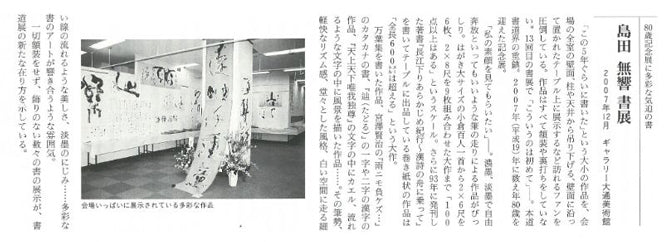 80歳記念展に多彩な気迫の書
島田 無響 書展
2007年12月 ギャラリー大通美術館
「この5年ぐらいに書いた」という大小の作品を、会
場の全室の壁面、柱や天井から吊り下げる、壁面に沿っ
て置かれたテーブル上に展示するなど訪れるファンを
圧倒している。作品はすべて額装や裏打ちをしていな
い。13回目の書展で「こういうのは初めて」。本道
書道界の重鎮。2007年(平成19)年に数え年80歳を
迎えた記念展。
「私の素顔を見てもらいたい」──。濃墨、淡墨で自由
奔放といってもいいような筆の走りによる作品がびっ
しり。はがき大サイズの小倉百人一首から2×6尺を
6枚、2×8尺を9枚組み合わせた大作まで「100
点以上はある」というスケール。さらに93年に発刊し
た著書『長江下り あらかじめ紀行～漢詩の舟に乗って』
を書いてテーブルに出品している巻き紙状の作品は
「全長600㍍は超える」という大作。
万葉集を書いた作品、宮澤賢治の「雨ニモ負ケズ…」
のカタカナの書、『辿(たどる)』の一字や二字の漢字の
作品、『天上天下唯我独尊』の文字の中にカエル、流れ
るような文字の中に風景を描いた作品……。その筆勢、
軽快なリズム感、堂々とした風格、白い空間に走る細
い線の流れるような美しさ、淡墨のにじみ……多彩な
書のアートが響き合うような雰囲気。
一切額装をせず、飾りのない数々の書の展示が、書
道展の新たな在り方を示している。
会場いっぱいに展示されている多彩な作品